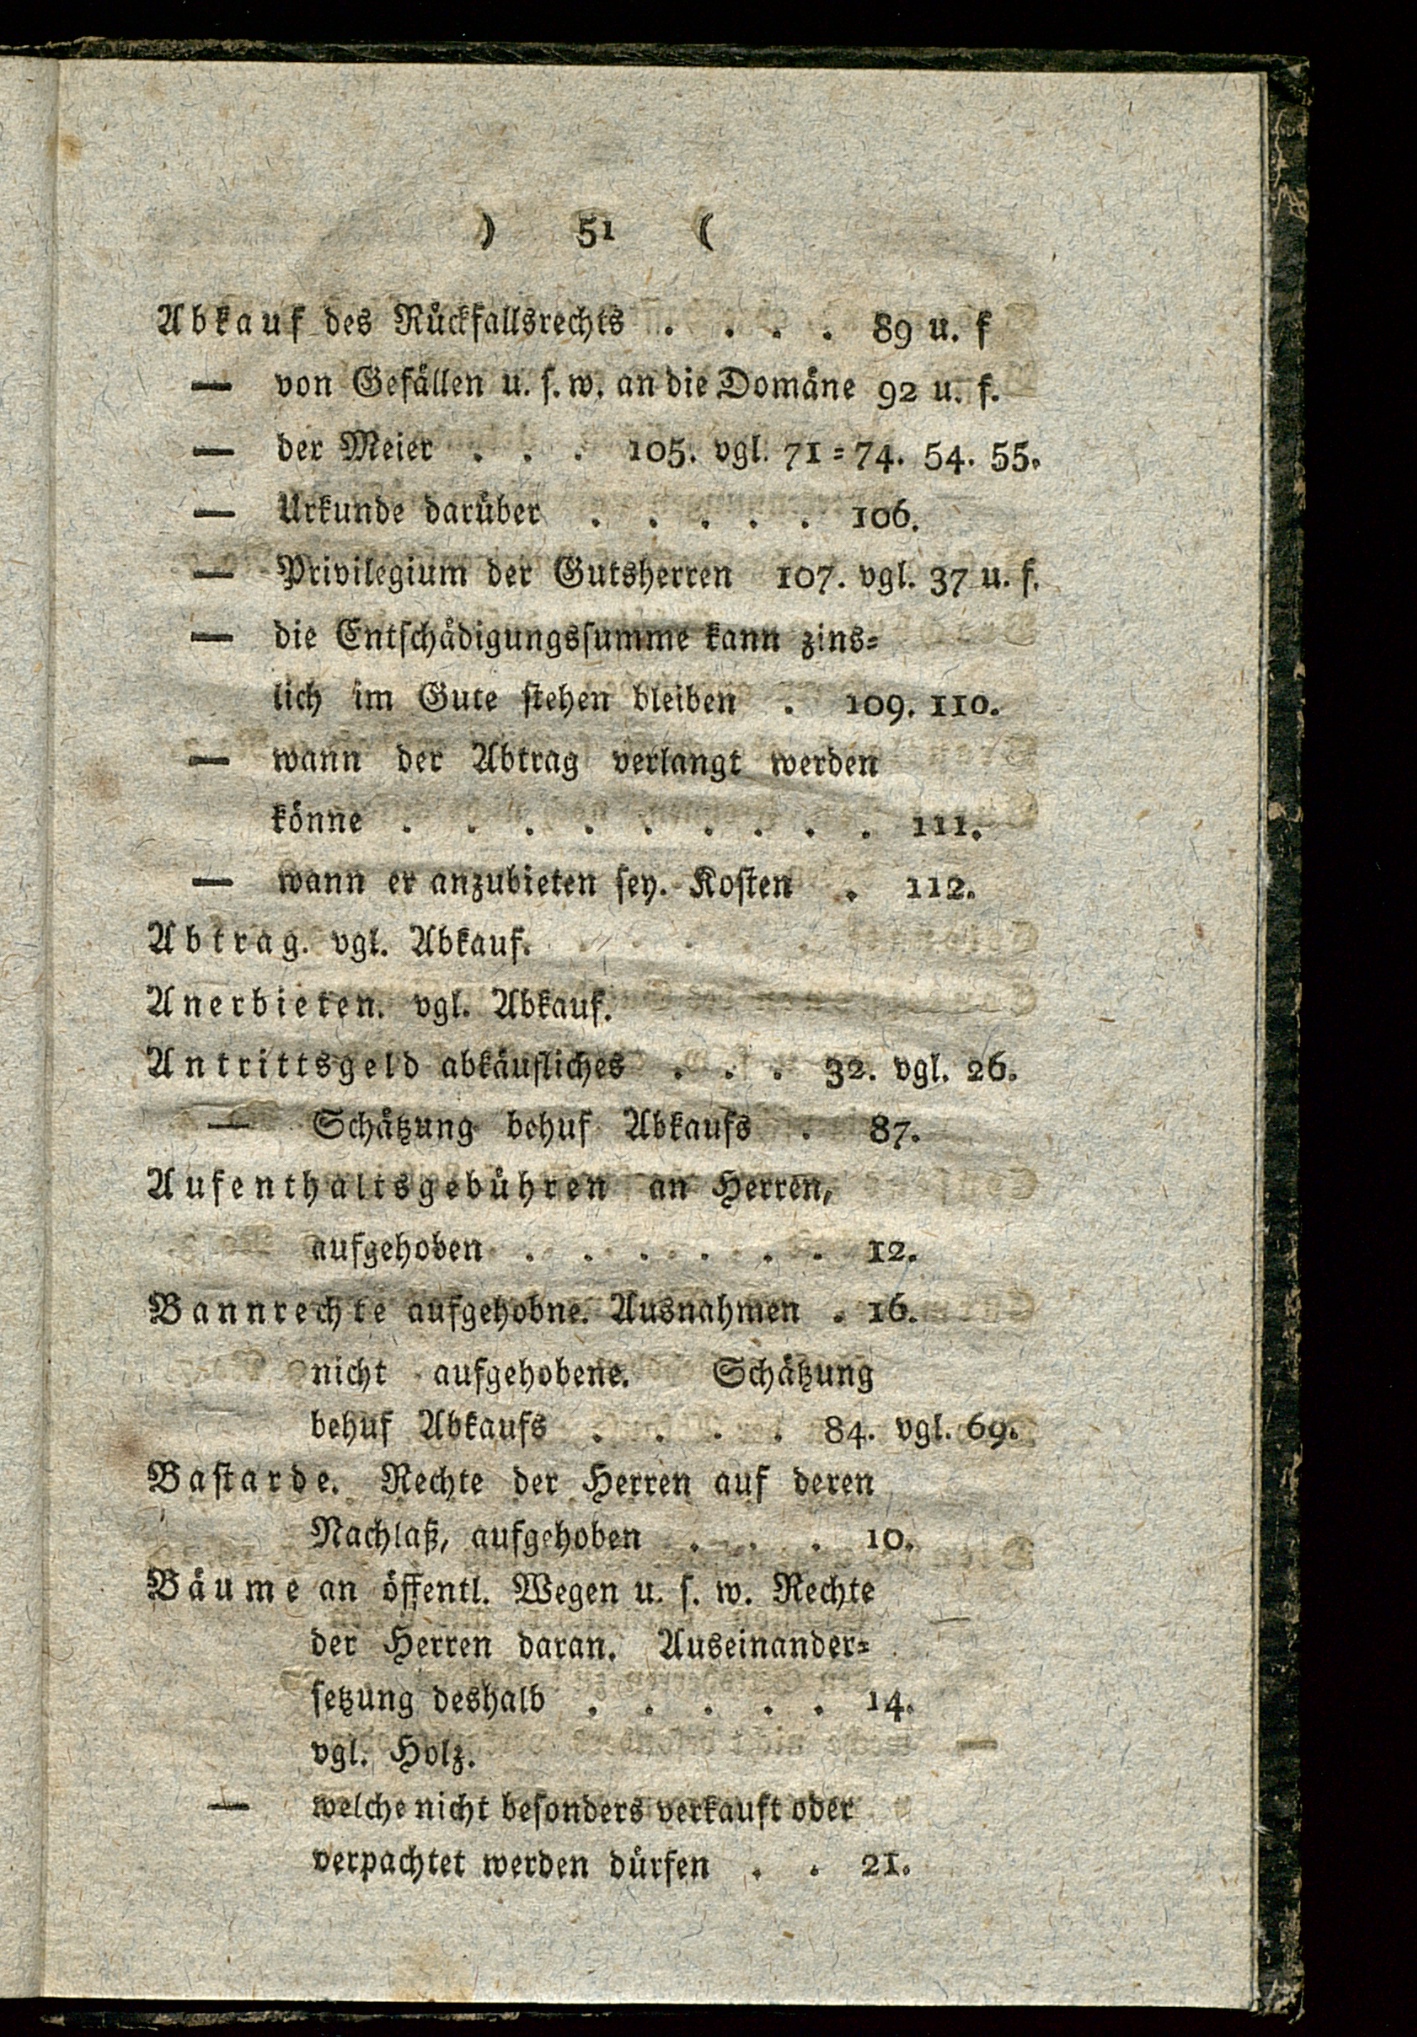 ) 51 (
Abkauf des Rückfallsrechts . . . . 89 u. f
— von Gefällen u. s. w. an die Domäne 92 u. f.
— der Meier . . . 105. vgl. 71=74. 54. 55.
— Urkunde darüber . . . . . 106.
— Privilegium der Gutsherren 107. vgl. 37 u. f.
— die Entschädigungssumme kann zins=
lich im Gute stehen bleiben . 109. 110.
— wann der Abtrag verlangt werden
könne . . . . . . . . . 111.
— wann er anzubieten sey. Kosten . 112.
Abtrag. vgl. Abkauf.
Anerbieten. vgl. Abkauf.
Antrittsgeld abkäufliches . . . 32. vgl. 26.
— Schätzung behuf Abkaufs . 87.
Aufenthaltsgebühren an Herren,
aufgehoben . . . . . . 12.
Bannrechte aufgehobne. Ausnahmen . 16.
nicht aufgehobene. Schätzung
behuf Abkaufs . . . . 84. vgl. 69.
Bastarde. Rechte der Herren auf deren
Nachlaß, aufgehoben . . . 10.
Bäume an öffentl. Wegen u. s. w. Rechte
der Herren daran. Auseinander=
setzung deshalb . . . . . 14.
vgl. Holz.
— welche nicht besonders verkauft oder
verpachtet werden dürfen . . 21.